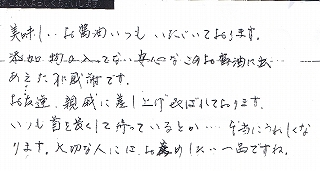 美味しいお醤油いつもいただいております。
添加物の入ってない安心なこのお醤油に出
あえた事に感謝です。
お友達、親戚に差し上げ喜ばれております。
いつも首を長くして待っているとか… 本当にうれしくな
ります。大切な人にはお薦めしたい一品ですね。